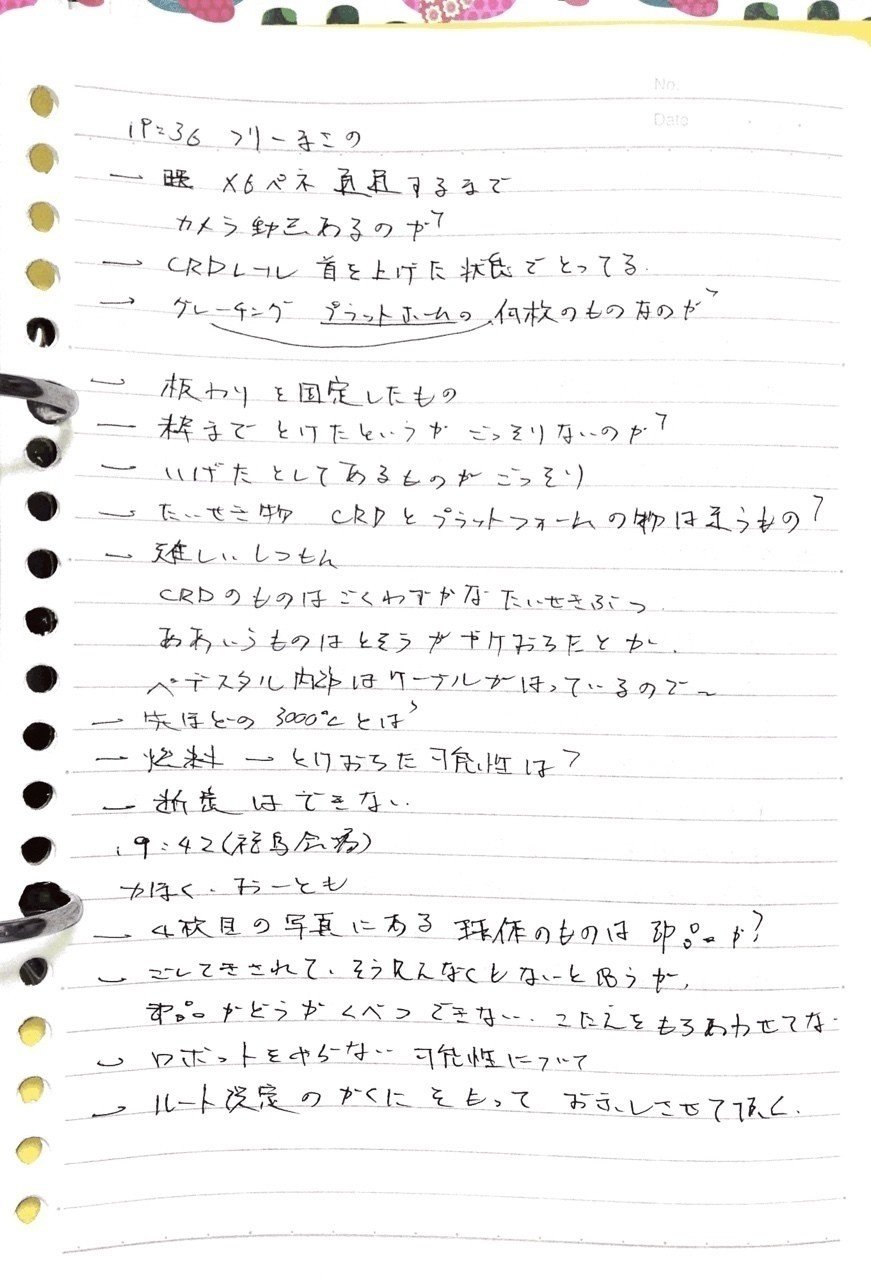 No.
Date
19:36 フリーまこの
→ X6ペネ 貫通するまで
カメラ 動画あるのか?
→ CRDレール 首を上げた状態でとってる.
→ グレーチング プラットホームの 何枚のものなのか?
→ 板わりを固定したもの
― 枠までとけたというか ごっそりないのか?
― いげたとしてあるものがごっそり
→ たいせき物 CRDとプラットフォームの物は違うもの?
→ 難しいしつもん
CRDのものはごくわずかなたいせきぶつ.
ああいうものはとそうがヤケおちたとか.
ペデスタル内部はケーブルがはっているので~
→ 先ほどの 3000℃とは?
→ 燃料 → とけおちた可能性は?
→ 断定はできない.
19:42(福島会場)
かほく. おーとも
→ 4枚目の写真にある 球体のものは 部品か?
→ ごしてきされて、そう見えなくもないと思うが,
部品かどうか くべつできない. こたえをもちあわせてな
→ ロボットをやらない可能性について
→ ルート設定のかくにをもって お示しさせて頂く.